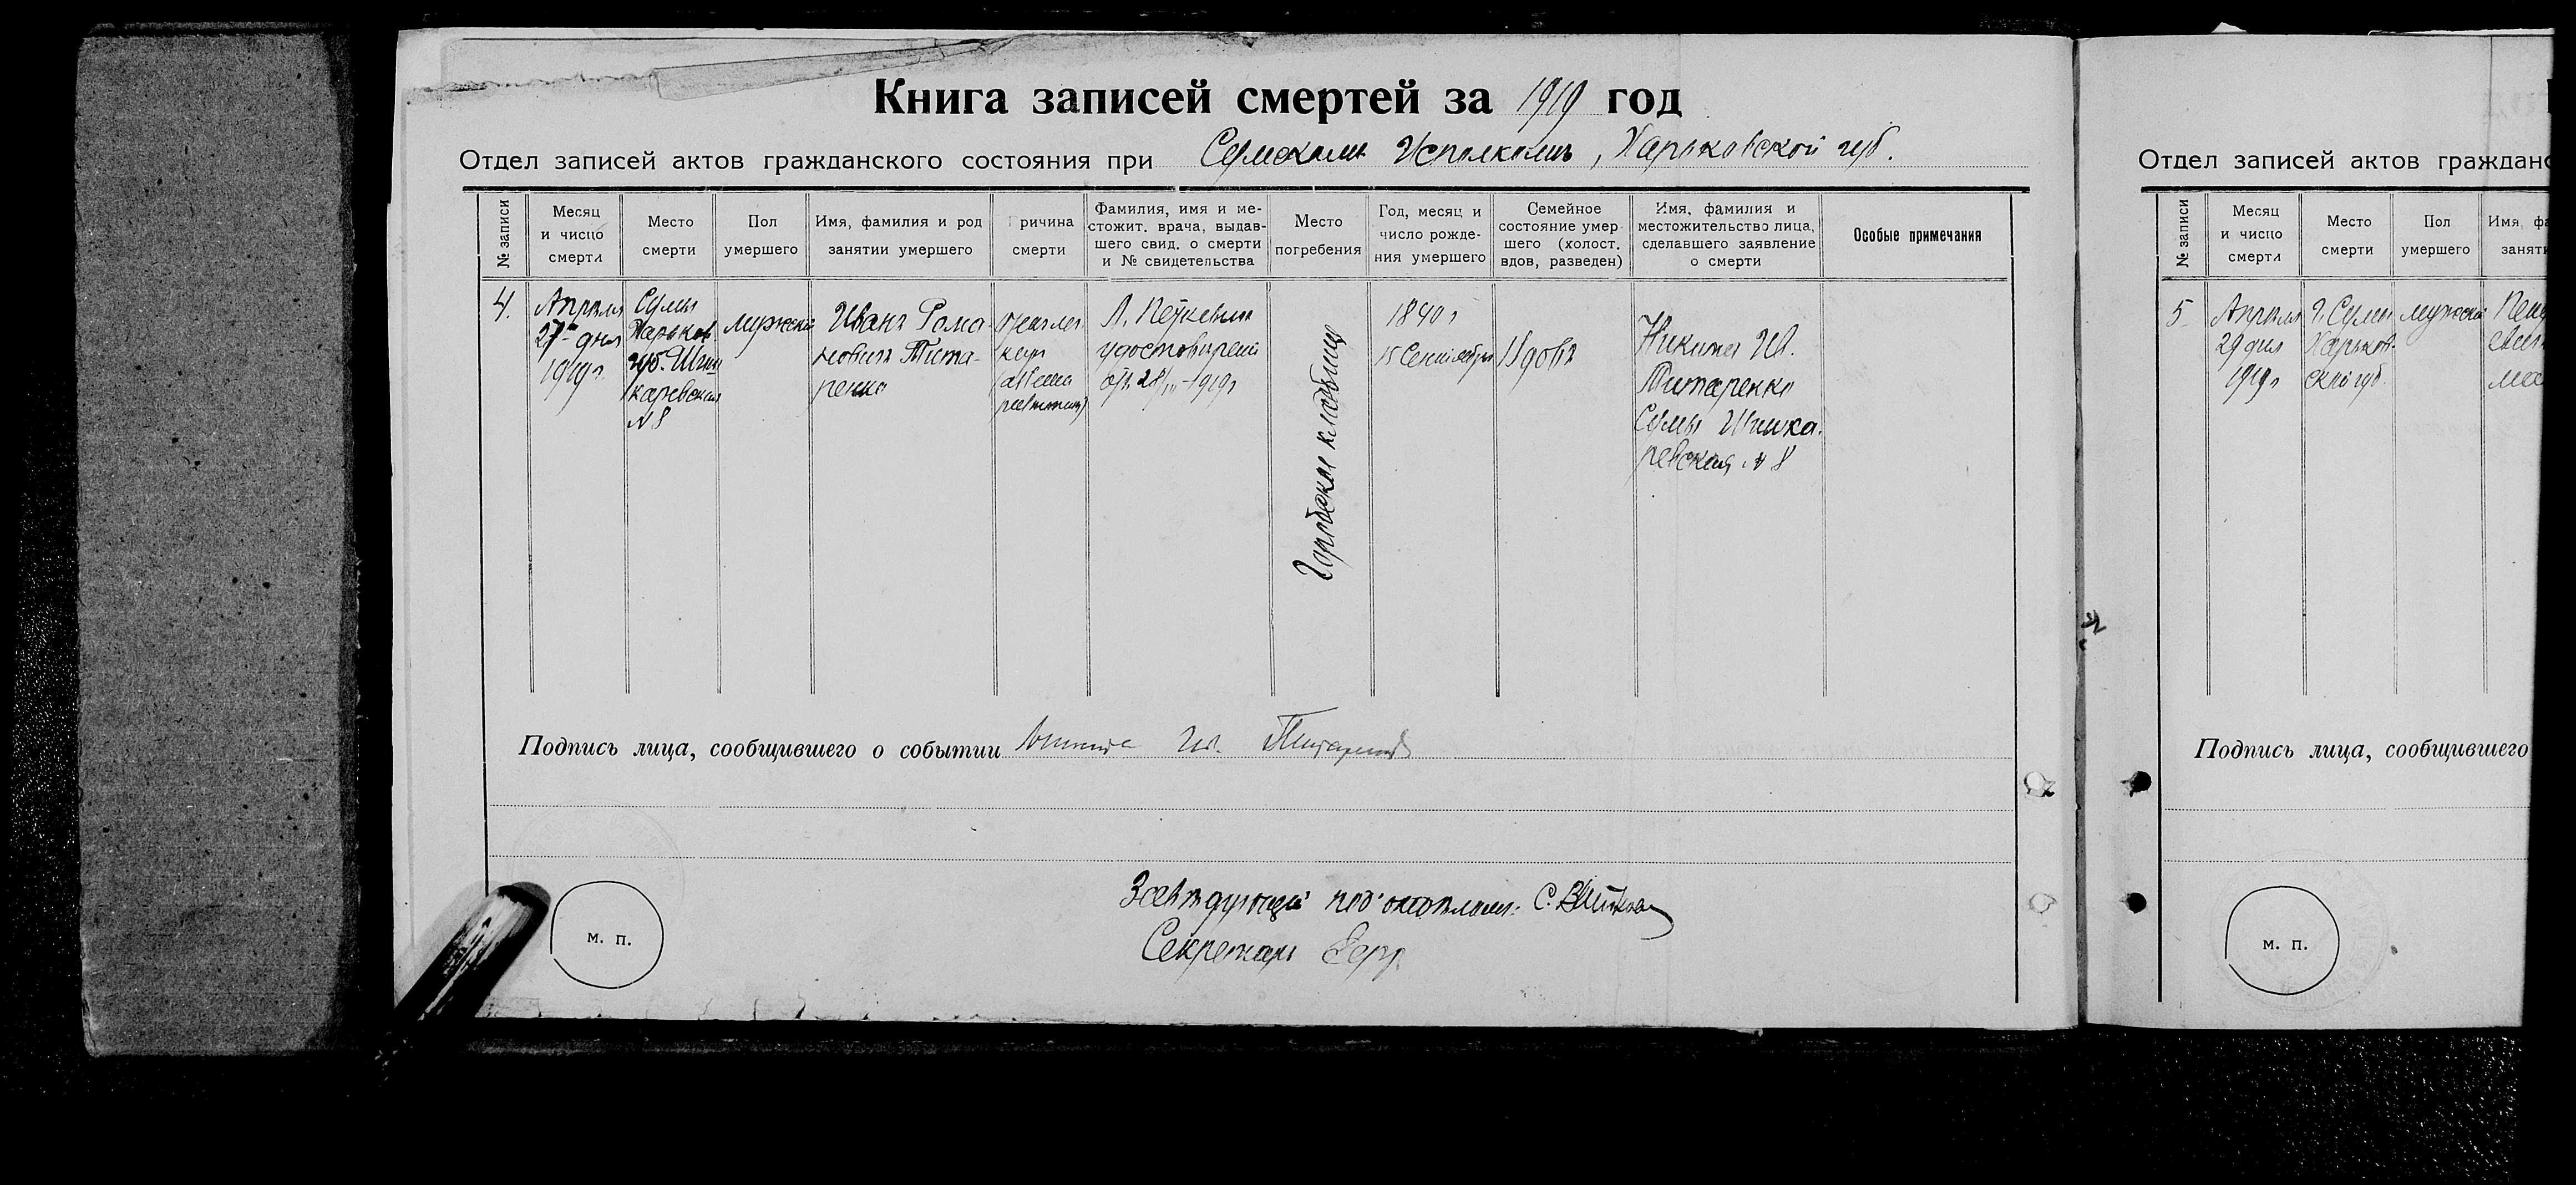 Книга записей смертей за 1919 год
Отдел записей актов гражданского состояния при Сумском Исполкоме, Харьковской губ.
№ записи
Месяц
и число
смерти
Место
смерти
Пол
умершего
Имя, фамилия и род
занятии умершего
Причина
смерти
Фамилия, имя и ме-
стожит. врача, выдав-
шего свид. о смерти
и № свидетельства
Место
погребения
Год, месяц и
число рожде-
ния умершего
Семейное
состояние умер
шего (холост.
вдов, разведен)
Имя, фамилия и
местожительство лица,
сделавшего заявление
о смерти
Особые примечания
4.
Апреля
27 дня
1919 г.
Сумы
Харьков.
губ. Шиш
каревская
№ 8
мужской
Иванъ Рома
новичъ Тита-
ренко
Л.
удостоверении
отъ 28/IV-1919 г
Городское кладбище
1840 г
15 Сентября
Вдовъ
Никита Ив.
Титаренко
Сумы Шишка.
ревская № 8
Подпись лица, сообщившего о событии Никита Ив. Титаренко
Заведующий под'отделом: С.
Секретарь
м. п.
Отдел записей актов гражданс
№ записи
Месяц
и число
смерти
Место
смерти
Пол
умершего
Имя, фа
заняти
5
Апреля
29 дня
1919 г
г. Сумы
Харьков-
ской губ.
мужской
Подпись лица, сообщившего
м. п.